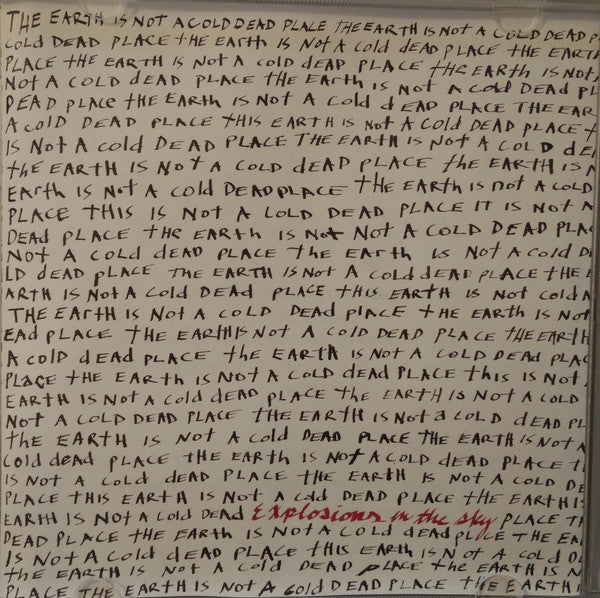 THE EARTH IS NOT A COLD DEAD PLACE THE EARTH IS NOT A COLD DEAD P
COLD DEAD PLACE THE EARTH IS NOT A COLD DEAD PLACE THE EARTH
PLACE THE EARTH IS NOT A COLD DEAD PLACE THE EARTH IS NOT
NOT A COLD DEAD PLACE THE EARTH IS NOT A COLD DEAD PL
DEAD PLACE THE EARTH IS NOT A COLD DEAD PLACE THE EAR
A COLD DEAD PLACE THIS EARTH IS NOT A COLD DEAD PLACE T
IS NOT A COLD DEAD PLACE THE EARTH IS NOT A COLD DE
THE EARTH IS NOT A COLD DEAD PLACE THE EARTH IS N
EARTH IS NOT A COLD DEAD PLACE THE EARTH IS NOT A COLD
PLACE THIS IS NOT A COLD DEAD PLACE IT IS NOT A
DEAD PLACE THE EARTH IS NOT NOT A COLD DEAD PLA
NOT A COLD DEAD PLACE THE EARTH IS NOT A COLD D
LD DEAD PLACE THE EARTH IS NOT A COLD DEAD PLACE THE E
ARTH IS NOT A COLD DEAD PLACE THIS EARTH IS NOT COLD A
THE EARTH IS NOT A COLD DEAD PLACE THE EARTH IS NOT
EAD PLACE THE EARTH IS NOT A COLD DEAD PLACE THE EARTH
A COLD DEAD PLACE THE EARTH IS NOT A COLD DEAD PLAC
PLACE THE EARTH IS NOT A COLD DEAD PLACE THIS IS NOT
EARTH IS NOT A COLD DEAD PLACE THE EARTH IS NOT A COLD
NOT A COLD DEAD PLACE THE EARTH IS NOT A COLD DEAD PL
THE EARTH IS NOT A COLD DEAD PLACE THE EARTH IS NOT A
COLD DEAD PLACE THE EARTH IS NOT A COLD DEAD PLACE T
IS NOT A COLD DEAD PLACE THE EARTH IS NOT A COLD DE
PLACE THIS EARTH IS NOT A COLD DEAD PLACE THE EARTH I
EARTH IS NOT A COLD DEAD Explosions in the sky PLACE TH
DEAD PLACE THE EARTH IS NOT A COLD DEAD PLACE THE EA
IS NOT A COLD DEAD PLACE THIS EARTH IS NOT A COLD D
THE EARTH IS NOT A COLD DEAD PLACE THE EARTH IS N
PLACE THE EARTH IS NOT A COLD DEAD PLACE THE EARTH I